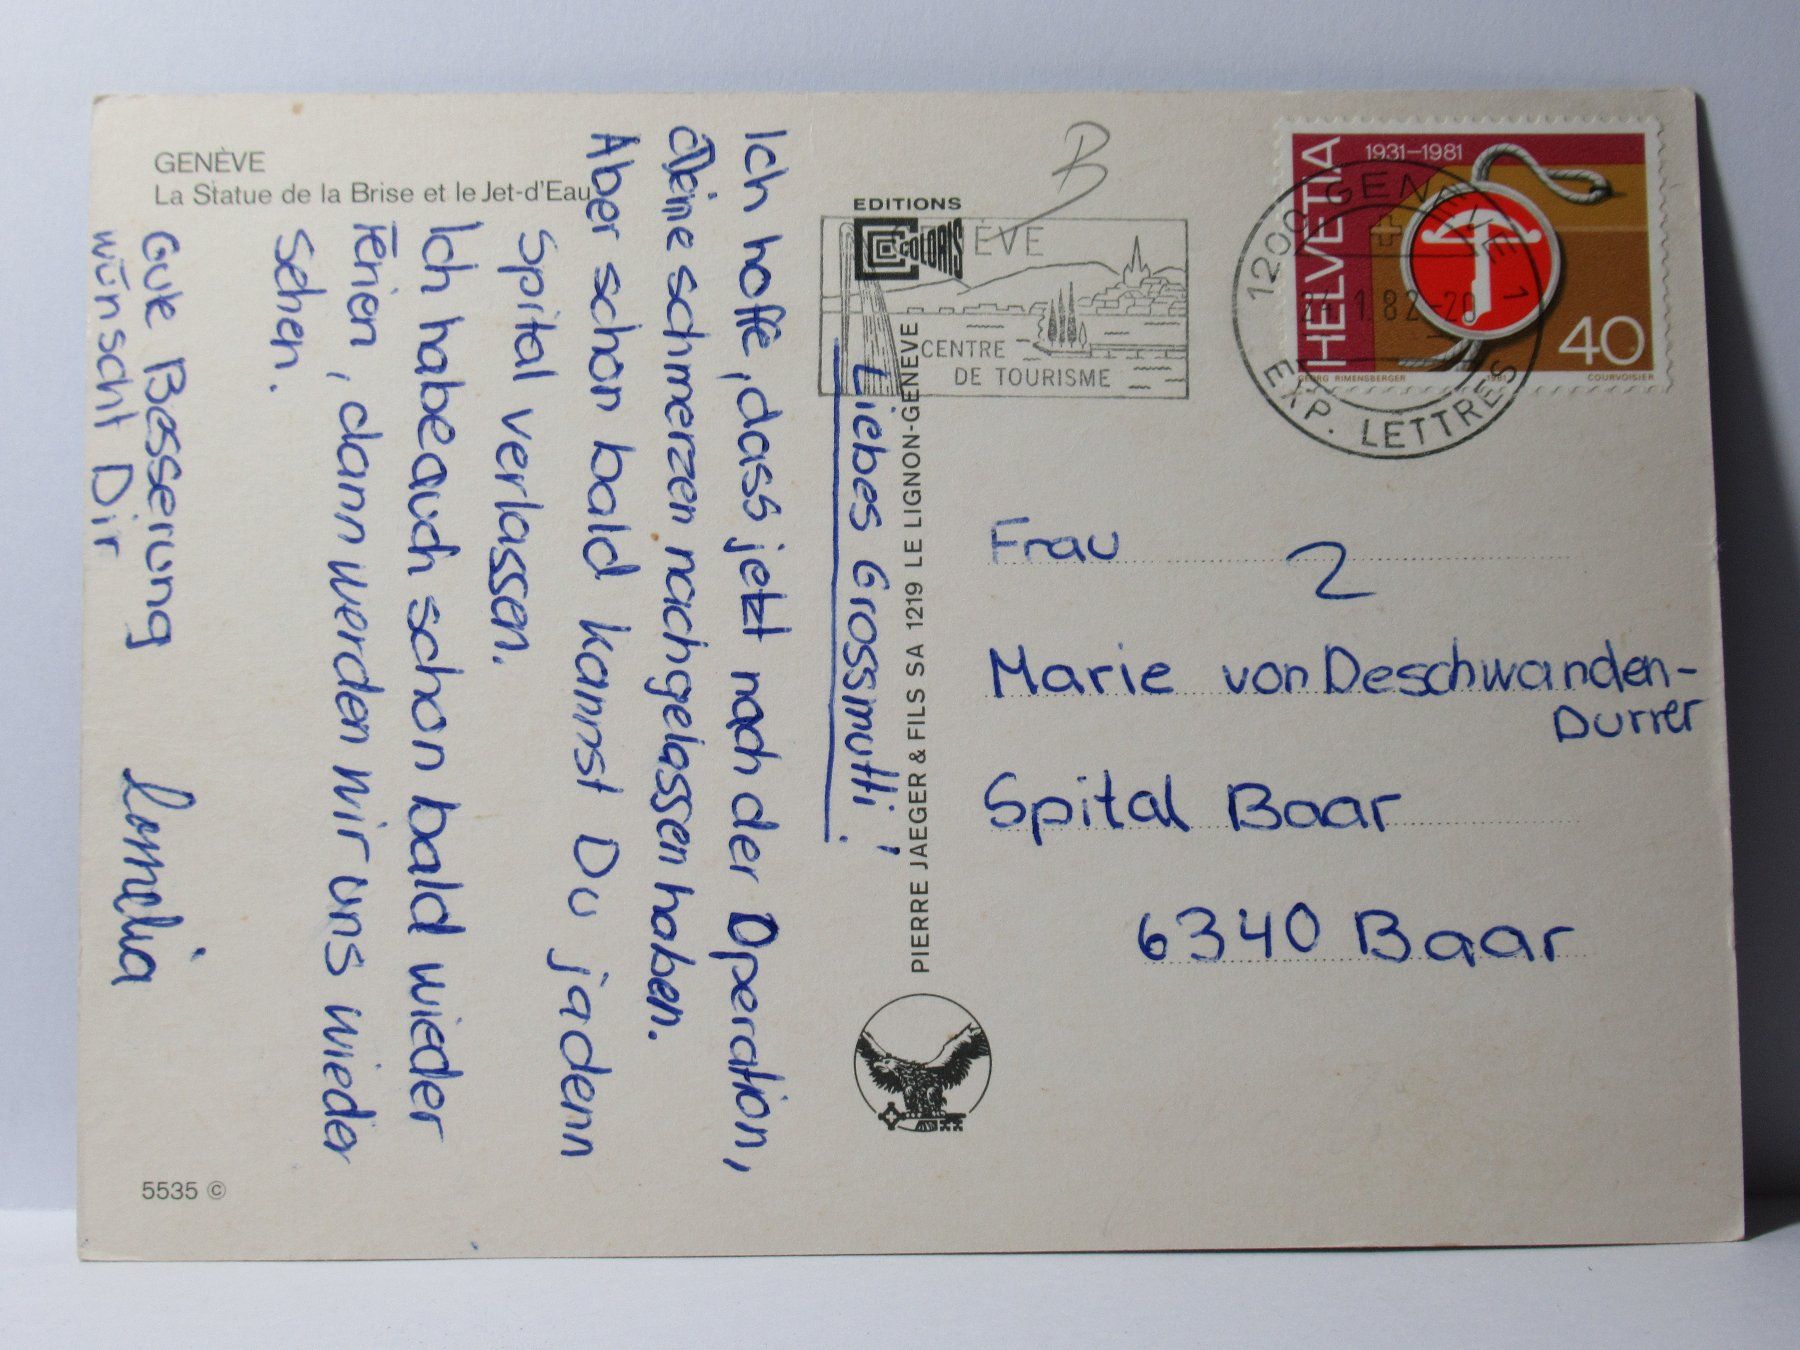 GENÈVE
La Statue de la Brise et le Jet-d'Eau
Liebes Grossmutti!
Ich hoffe, dass jetzt nach der Operation,
deine schmerzen nachgelassen haben.
Aber schon bald kannst Du ja denn
Spital verlassen.
Ich habe auch schon bald wieder
Ferien, dann werden wir uns wieder
sehen.
Gute Besserung
wünscht Dir
Cornelia
5535 ©
EDITIONS
COLORIS
PIERRE JAEGER & FILS SA 1219 LE LIGNON-GENEVE
B
ÈVE
CENTRE
DE TOURISME
HELVETIA
1931–1981
40
GEORG RIMENSBERGER 1981 COURVOISIER
1200 GENÈVE 1
24.1.82-20
EXP. LETTRES
Frau 2
Marie von Deschwanden-
Durrer
Spital Baar
6340 Baar